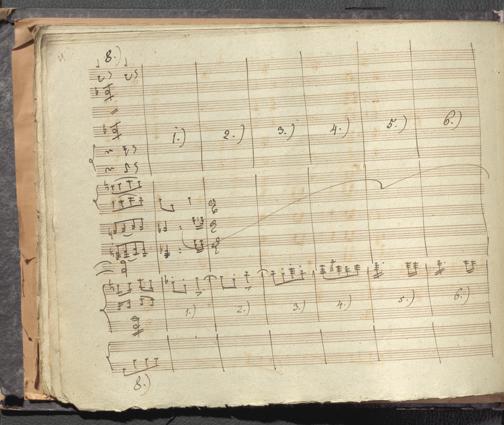 8.)
1.) 2.) 3.) 4.) 5.) 6.)
1.) 2.) 3.) 4.) 5.) 6.)
8.)